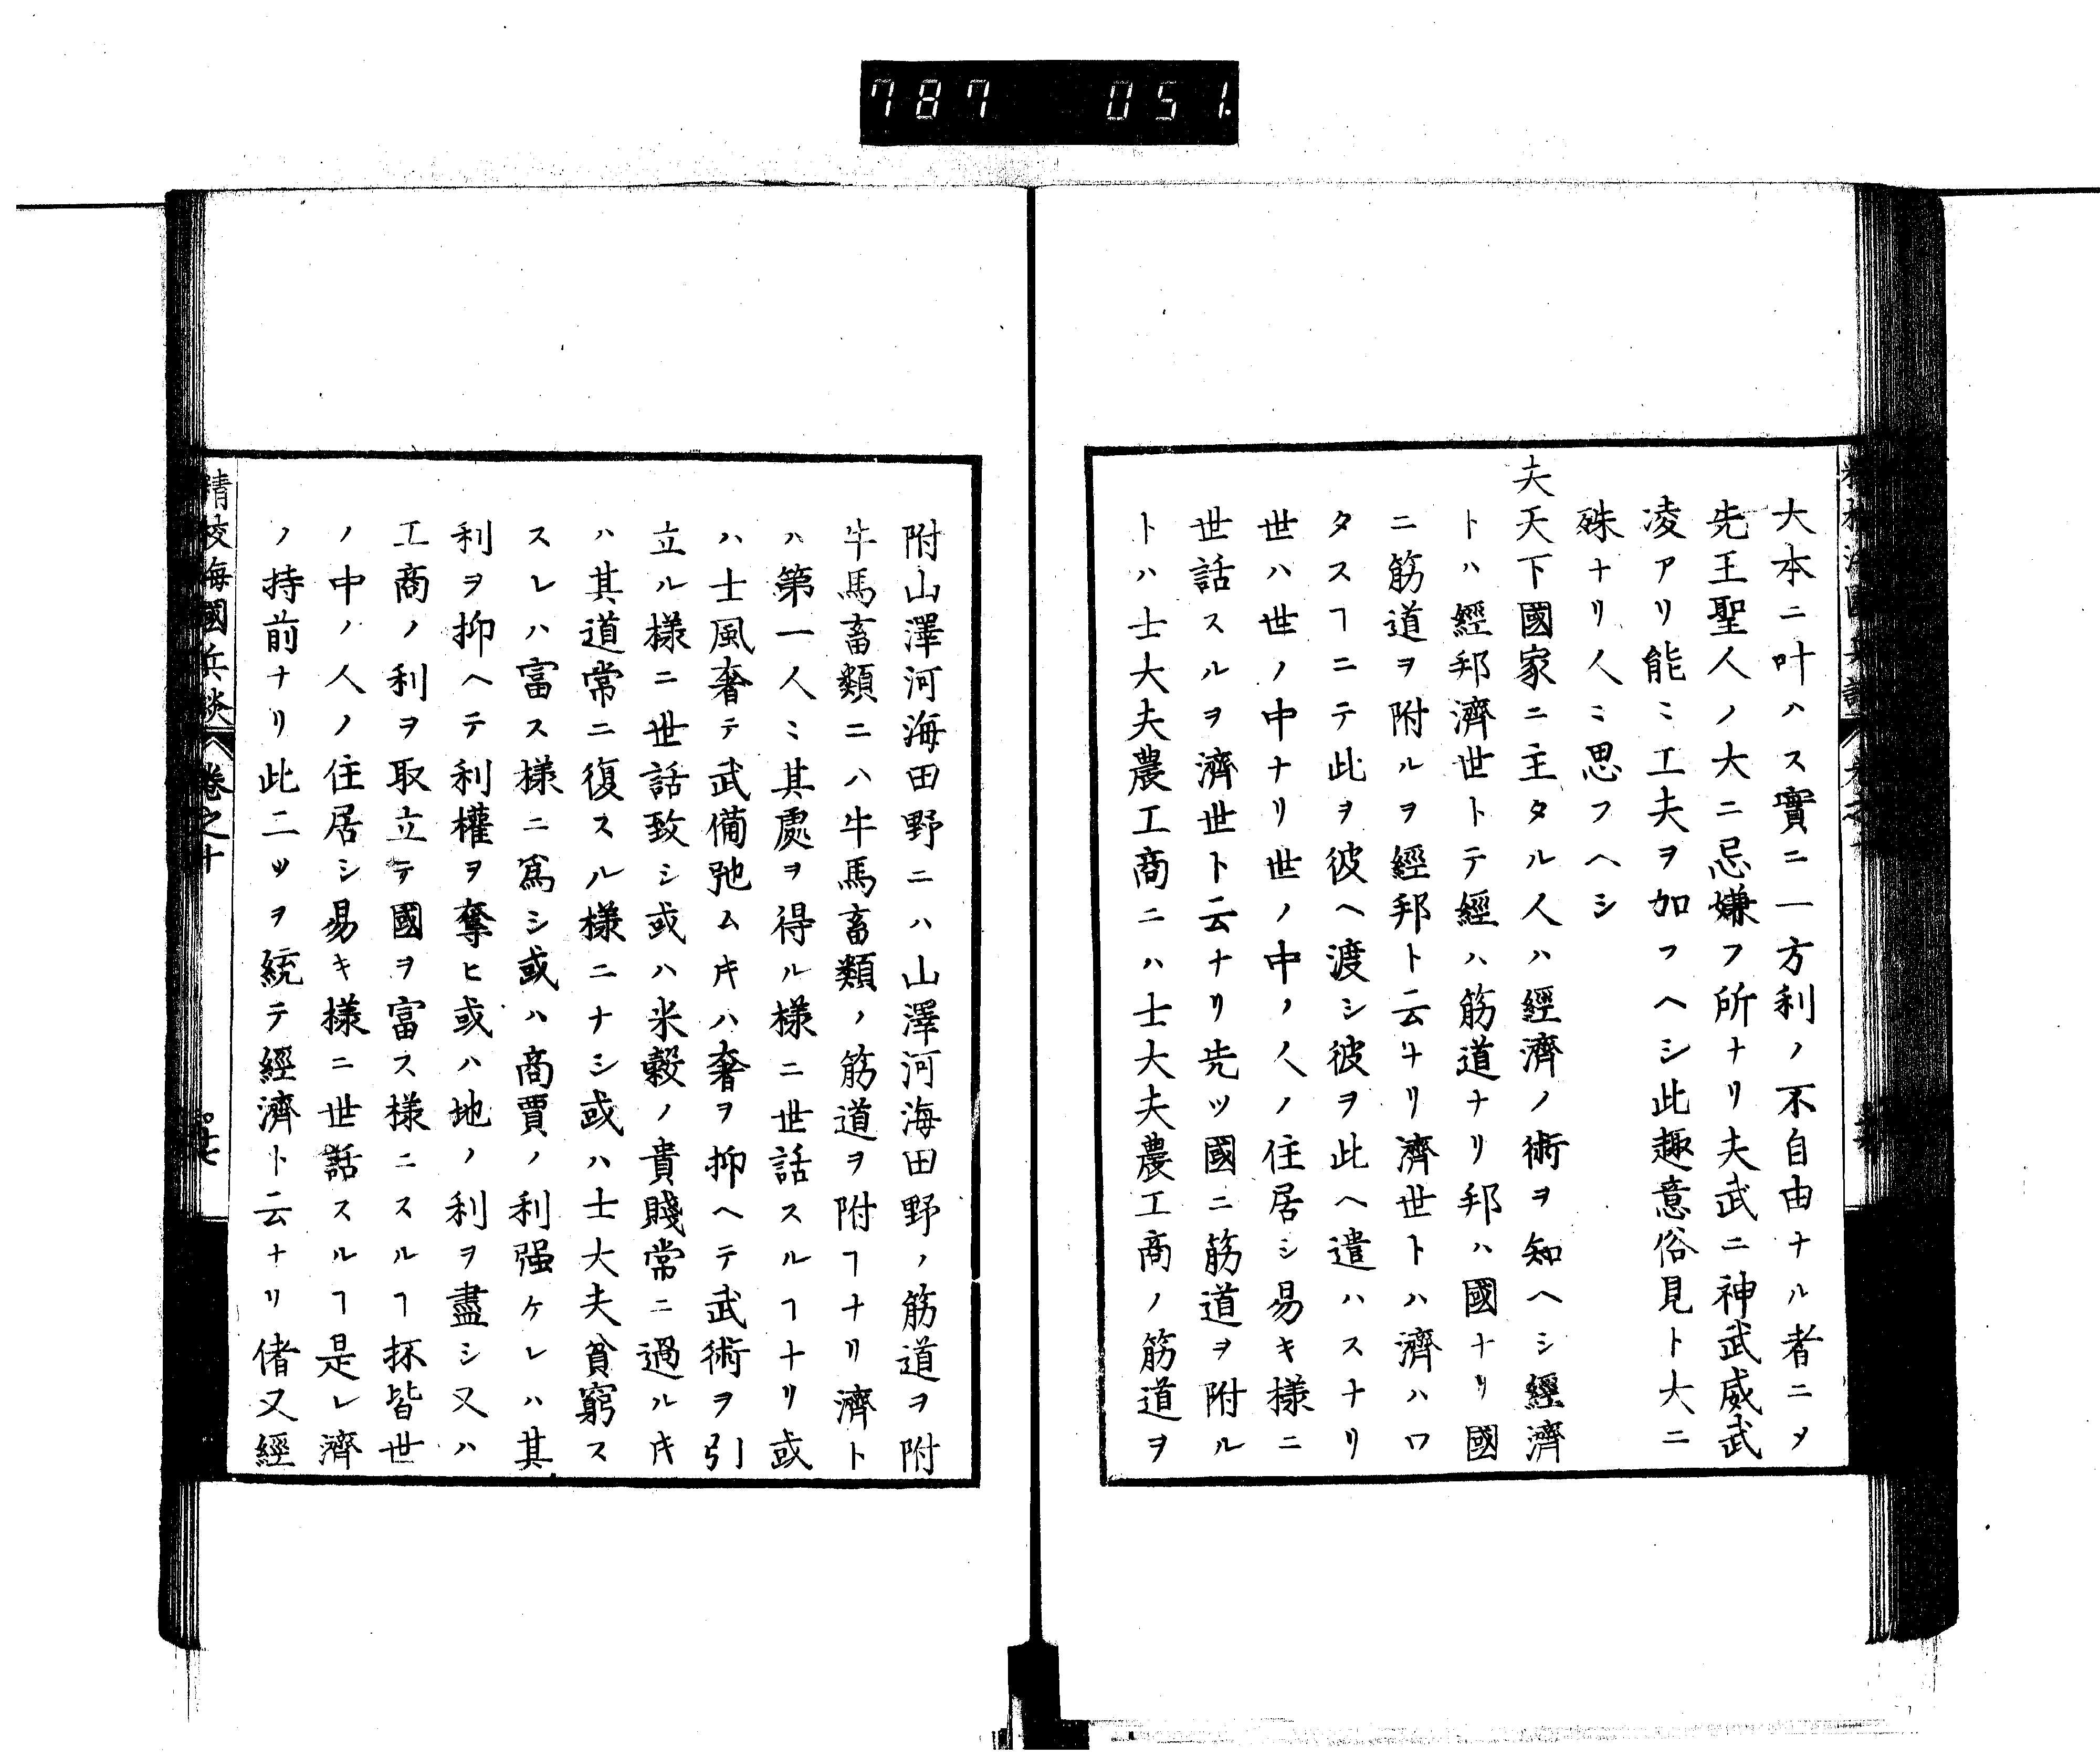 787 051.
大本ニ叶ハス實ニ一方利ノ不自由ナル者ニメ
先王聖人ノ大ニ忌嫌フ所ナリ夫武ニ神武威武
凌アリ能ミ工夫ヲ加フヘシ此趣意俗見ト大ニ
殊ナリ人ミ思フヘシ
夫天下國家ニ主タル人ハ經濟ノ術ヲ知ヘシ經濟
トハ經邦濟世トテ經ハ筋道ナリ邦ハ國ナリ國
ニ筋道ヲ附ルヲ經邦ト云ナリ濟世トハ濟ハワ
タスヿニテ此ヲ彼ヘ渡シ彼ヲ此ヘ遣ハスナリ
世ハ世ノ中ナリ世ノ中ノ人ノ住居シ易キ樣ニ
世話スルヲ濟世ト云ナリ先ツ國ニ筋道ヲ附ル
トハ士大夫農工商ニハ士大夫農工商ノ筋道ヲ
附山澤河海田野ニハ山澤河海田野ノ筋道ヲ附
牛馬畜類ニハ牛馬畜類ノ筋道ヲ附ヿナリ濟ト
ハ第一人ミ其處ヲ得ル樣ニ世話スルヿナリ或
ハ士風奢テ武備弛ムキハ奢ヲ抑ヘテ武術ヲ引
立ル樣ニ世話致シ或ハ米穀ノ貴賤常ニ過ルキ
ハ其道常ニ復スル樣ニナシ或ハ士大夫貧窮ス
スレハ富ス樣ニ爲シ或ハ商賈ノ利强ケレハ其
利ヲ抑ヘテ利權ヲ奪ヒ或ハ地ノ利ヲ盡シ又ハ
工商ノ利ヲ取立テ國ヲ富ス樣ニスルヿ抔皆世
ノ中ノ人ノ住居シ易キ樣ニ世話スルヿ是レ濟
ノ持前ナリ此二ツヲ統テ經濟ト云ナリ偖又經
精校海國兵談 卷之十